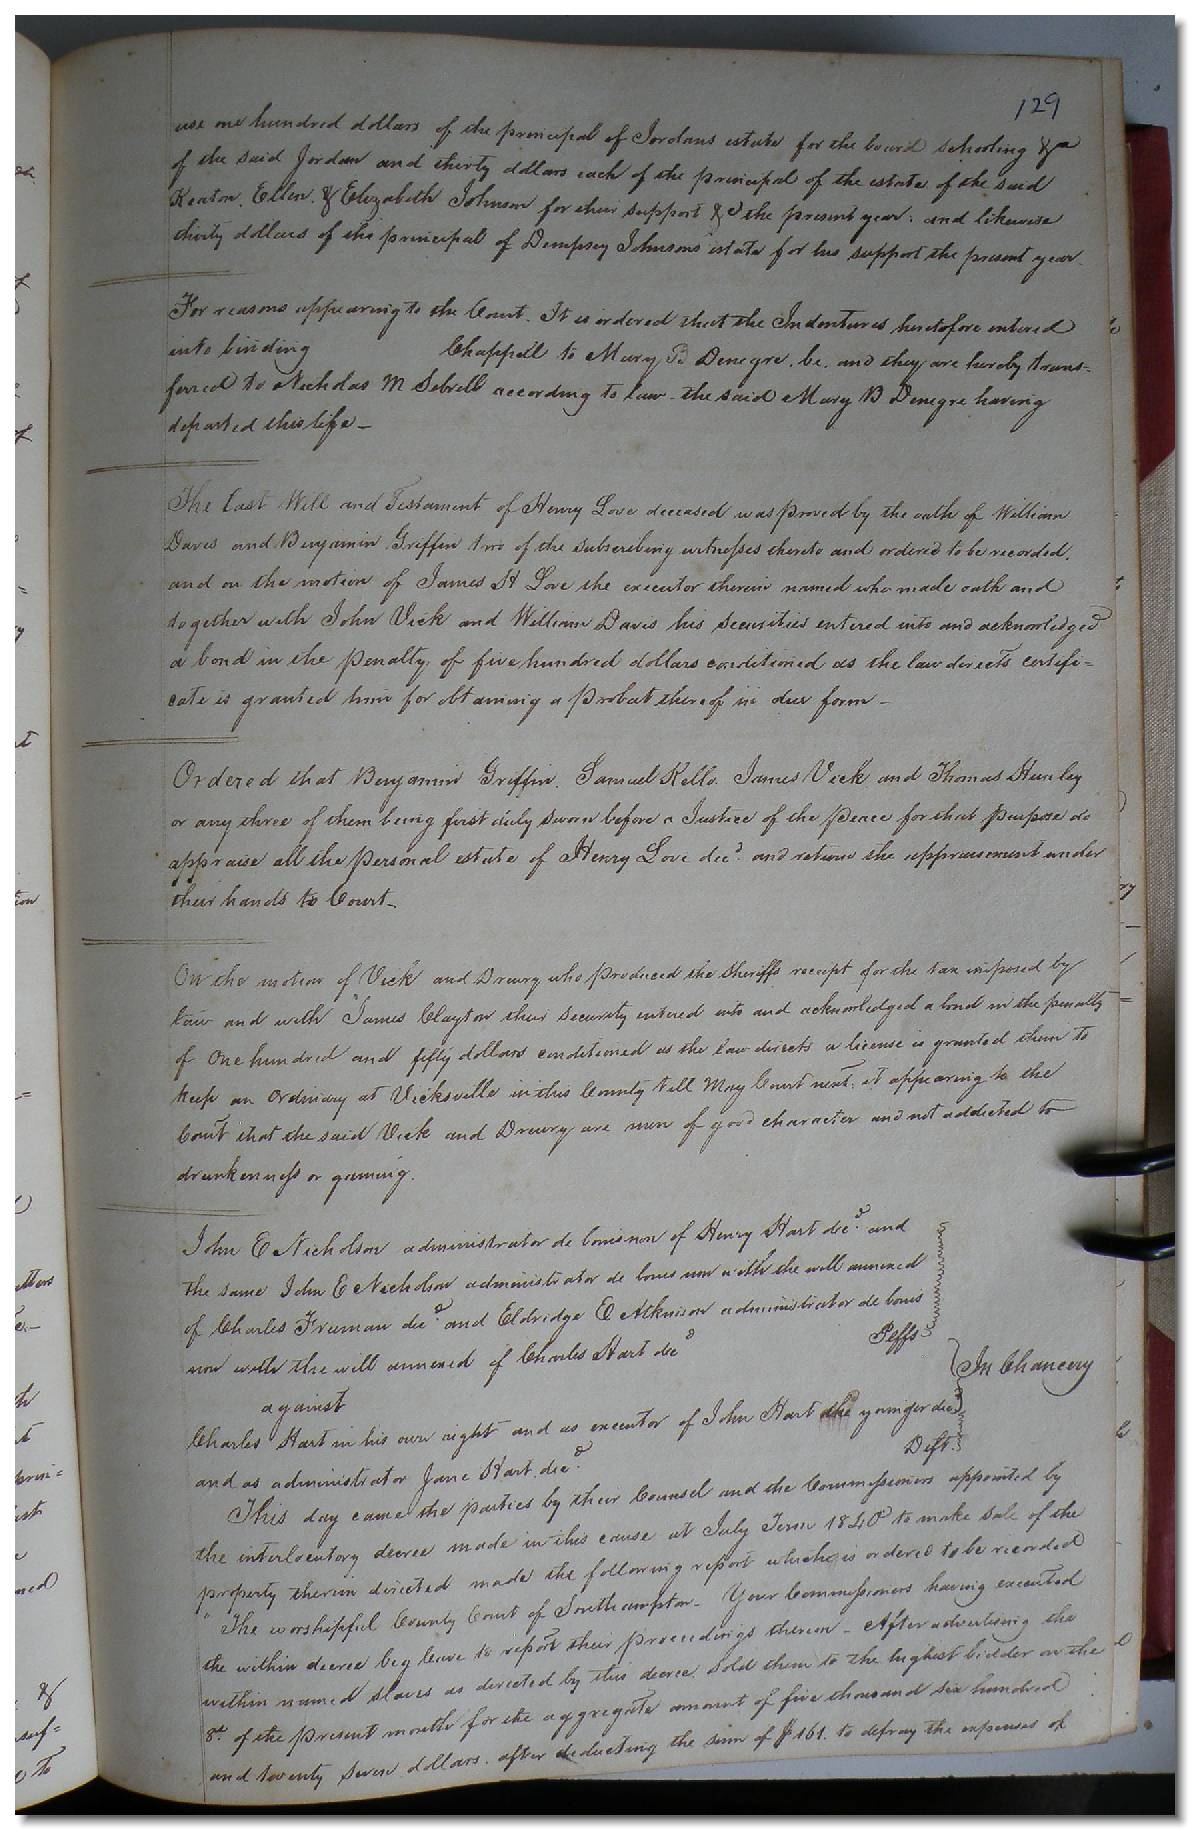 129
use one hundred dollars of the principal of Jordans estate for the board schooling &a
of the said Jordan and thirty dollars each of the principal of the estate of the said
Keaton, Ellen, & Elizabeth Johnson for their support &c the present year; and likewise
thirty dollars of the principal of Dempsey Johnsons estate for his support the present year
For reasons appearing to the Court. It is ordered that the Indentures heretofore entered
into binding Chappell to Mary B Denegre, be, and they are hereby trans=
ferred to Nicholas M Sebrell according to law - the said Mary B Denegre having
departed this life -
The Last Will and Testament of Henry Love deceased was proved by the oath of William
Davis and Benjamin Griffin two of the subscribing witnesses thereto and ordered to be recorded.
and on the motion of James H Love the executor therein named who made oath and
together with John Vick and William Davis his securities entered into and acknowledged
a bond in the penalty of five hundred dollars conditioned as the law directs certifi=
cate is granted him for obtaining a probat thereof in due form -
Ordered that Benjamin Griffin, Samuel Kello, James Vick and Thomas Hunley
or any three of them being first duly sworn before a Justice of the peace for that purpose do
appraise all the personal estate of Henry Love decd. and return the appraisement under
their hands to Court -
On the motion of Vick and Drewry who produced the Sheriffs receipt for the tax imposed by
law and with James Clayton their security entered into and acknowledged a bond in the penalty
of One hundred and fifty dollars conditioned as the law directs a license is granted them to
keep an ordinary at Vicksville in this County till May Court next, it appearing to the
Court that the said Vick and Drewry are men of good character and not addicted to
drunkenness or gaming.
John E Nicholson administrator de bonis non of Henry Hart decd. and
the same John E Nicholson administrator de bonis non with the will annexed
of Charles Fruman decd and Eldridge E Atkinson administrator de bonis
non with the will annexed of Charles Hart decd Peffs
In Chancery
against
Charles Hart in his own right and as executor of John Hart the younger decd
and as administrator Jane Hart decd. Deft.
This day came the parties by their Counsel and the Commissioners appointed by
the interlocutory decree made in this cause at July Term 1840 to make sale of the
property therein directed made the following report which is ordered to be recorded
"The worshipful County Court of Southampton - Your Commissioners having executed
the within decree beg leave to report their proceedings thereon - After advertising the
within named slaves as directed by this decree, sold them to the highest bidder on the
8th of the present month for the aggregate amount of five thousand six hundred
and twenty seven dollars. after deducting the sum of $161. to defray the expenses of